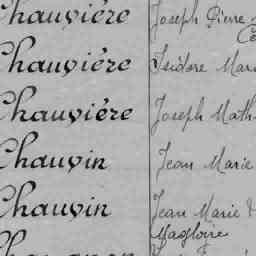 Chauvière Joseph Pierre
Chauvière Isidore Marie
Chauvière Joseph Math
Chauvin Jean Marie
Chauvin Jean Marie
Magloire